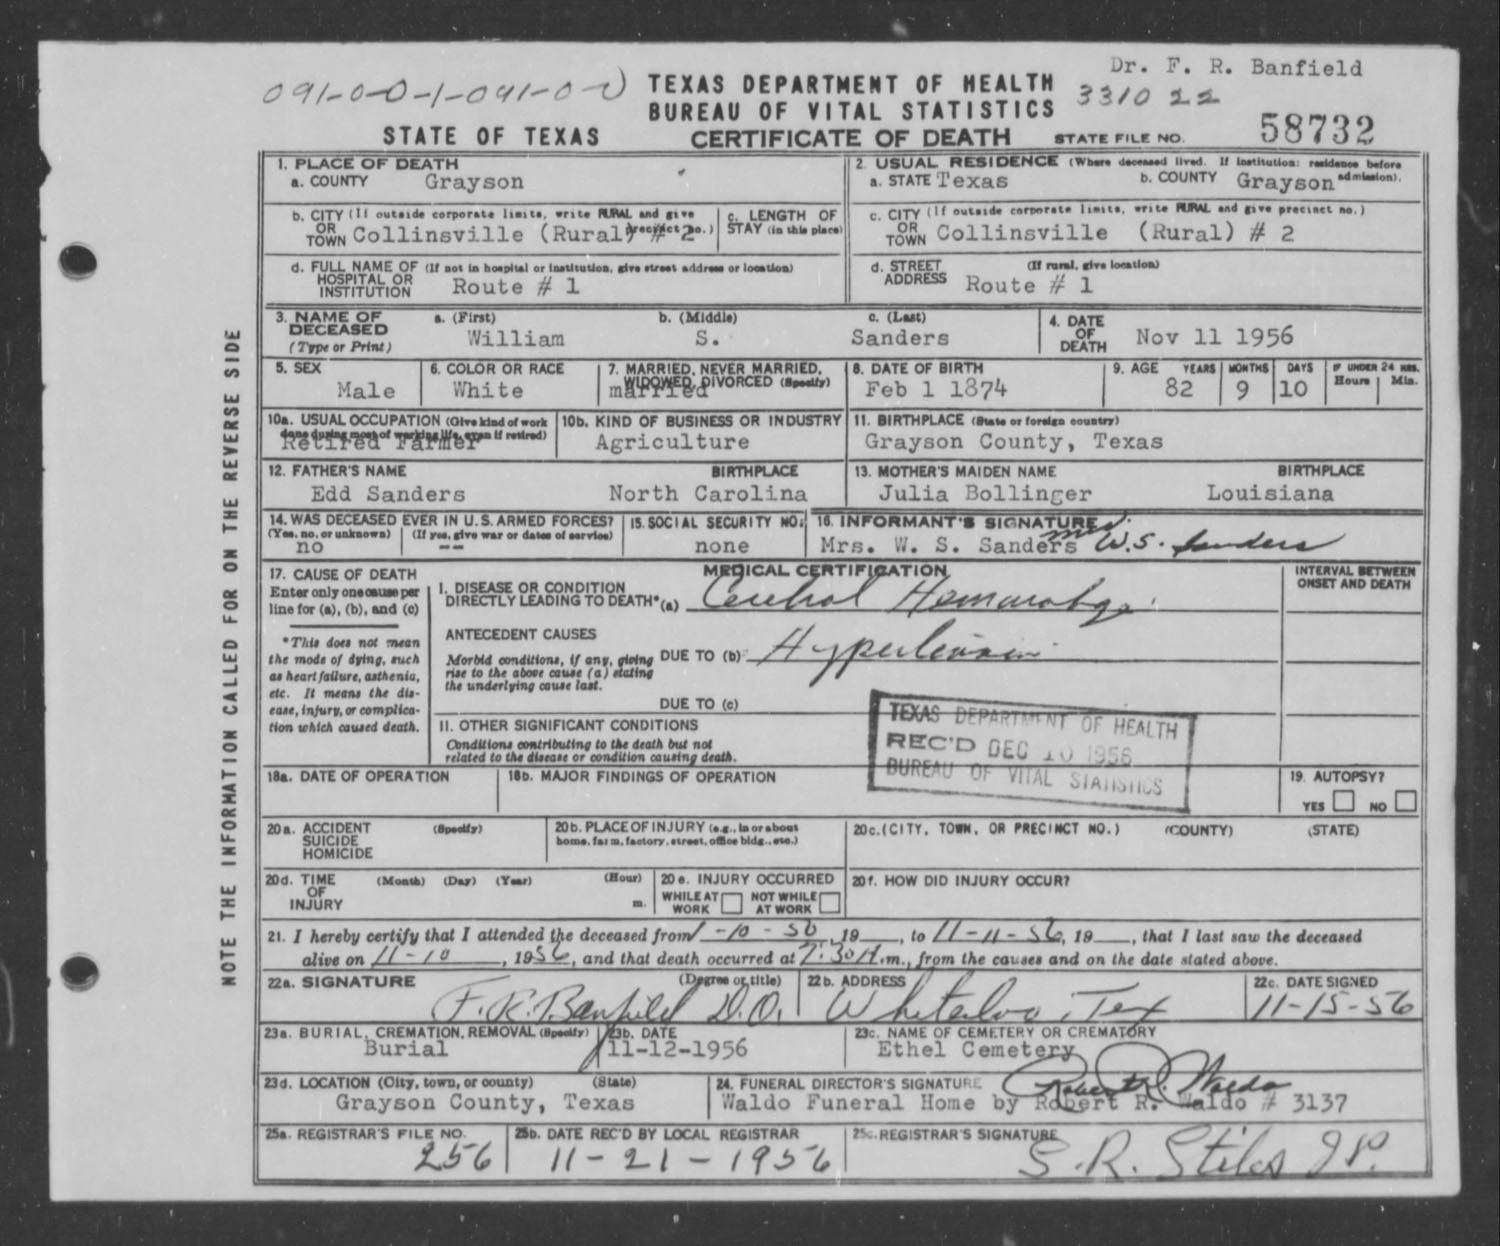 Dr. F. R. Banfield
091-0-0-1-091-0-0
TEXAS DEPARTMENT OF HEALTH
331022
BUREAU OF VITAL STATISTICS
STATE OF TEXAS
CERTIFICATE OF DEATH
STATE FILE NO. 58732
1. PLACE OF DEATH
a. COUNTY Grayson
2. USUAL RESIDENCE (Where deceased lived. If institution: residence before admission).
a. STATE Texas b. COUNTY Grayson
b. CITY (If outside corporate limits, write RURAL and give precinct no.)
OR TOWN Collinsville (Rural) # 2
c. LENGTH OF STAY (in this place)
c. CITY (If outside corporate limits, write RURAL and give precinct no.)
OR TOWN Collinsville (Rural) # 2
d. FULL NAME OF (If not in hospital or institution, give street address or location)
HOSPITAL OR INSTITUTION Route # 1
d. STREET ADDRESS (If rural, give location)
Route # 1
3. NAME OF DECEASED (Type or Print)
a. (First) b. (Middle) c. (Last)
William S. Sanders
4. DATE OF DEATH Nov 11 1956
5. SEX
Male
6. COLOR OR RACE
White
7. MARRIED, NEVER MARRIED, WIDOWED, DIVORCED (Specify)
married
8. DATE OF BIRTH
Feb 1 1874
9. AGE YEARS MONTHS DAYS IF UNDER 24 HRS. Hours Min.
82 9 10
10a. USUAL OCCUPATION (Give kind of work done during most of working life, even if retired)
Retired Farmer
10b. KIND OF BUSINESS OR INDUSTRY
Agriculture
11. BIRTHPLACE (State or foreign country)
Grayson County, Texas
12. FATHER'S NAME BIRTHPLACE
Edd Sanders North Carolina
13. MOTHER'S MAIDEN NAME BIRTHPLACE
Julia Bollinger Louisiana
14. WAS DECEASED EVER IN U.S. ARMED FORCES?
(Yes, no, or unknown) (If yes, give war or dates of service)
no --
15. SOCIAL SECURITY NO.
none
16. INFORMANT'S SIGNATURE
Mrs. W. S. Sanders Mrs W.S. Sanders
MEDICAL CERTIFICATION
INTERVAL BETWEEN ONSET AND DEATH
17. CAUSE OF DEATH
Enter only one cause per line for (a), (b), and (c)
*This does not mean the mode of dying, such as heart failure, asthenia, etc. It means the disease, injury, or complication which caused death.
I. DISEASE OR CONDITION DIRECTLY LEADING TO DEATH* (a) Cerebral Hemorrhage
ANTECEDENT CAUSES
Morbid conditions, if any, giving rise to the above cause (a) stating the underlying cause last.
DUE TO (b) Hypertension
DUE TO (c)
II. OTHER SIGNIFICANT CONDITIONS
Conditions contributing to the death but not related to the disease or condition causing death.
TEXAS DEPARTMENT OF HEALTH
REC'D DEC 10 1956
BUREAU OF VITAL STATISTICS
18a. DATE OF OPERATION
18b. MAJOR FINDINGS OF OPERATION
19. AUTOPSY?
YES NO
20a. ACCIDENT SUICIDE HOMICIDE (Specify)
20b. PLACE OF INJURY (e.g., in or about home, farm, factory, street, office bldg., etc.)
20c. (CITY, TOWN, OR PRECINCT NO.) (COUNTY) (STATE)
20d. TIME OF INJURY (Month) (Day) (Year) (Hour) m.
20e. INJURY OCCURRED
WHILE AT WORK NOT WHILE AT WORK
20f. HOW DID INJURY OCCUR?
21. I hereby certify that I attended the deceased from 1-10-56, 19__, to 11-11-56, 19__, that I last saw the deceased
alive on 11-10, 1956, and that death occurred at 7:30 A.m., from the causes and on the date stated above.
22a. SIGNATURE (Degree or title)
F. R. Banfield D.O.
22b. ADDRESS
Whitesboro Tex
22c. DATE SIGNED
11-15-56
23a. BURIAL, CREMATION, REMOVAL (Specify)
Burial
23b. DATE
11-12-1956
23c. NAME OF CEMETERY OR CREMATORY
Ethel Cemetery
23d. LOCATION (City, town, or county) (State)
Grayson County, Texas
24. FUNERAL DIRECTOR'S SIGNATURE Robert R. Waldo
Waldo Funeral Home by Robert R. Waldo # 3137
25a. REGISTRAR'S FILE NO.
256
25b. DATE REC'D BY LOCAL REGISTRAR
11-21-1956
25c. REGISTRAR'S SIGNATURE
S. R. Stiles J.P.
NOTE THE INFORMATION CALLED FOR ON THE REVERSE SIDE